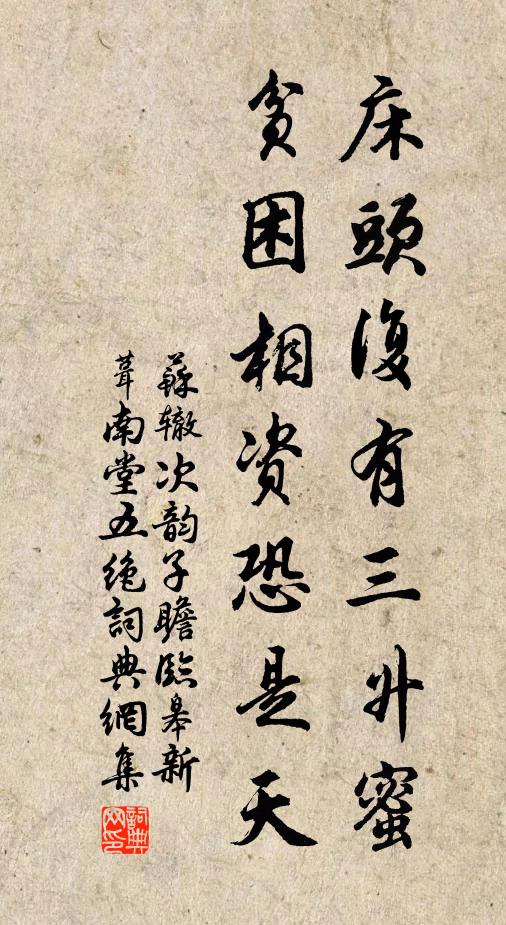 床頭復有三升蜜
貧困相資恐是天
蘇辙次韵子瞻臨皋新
葺南堂五绝詞典網集
詞典
网印